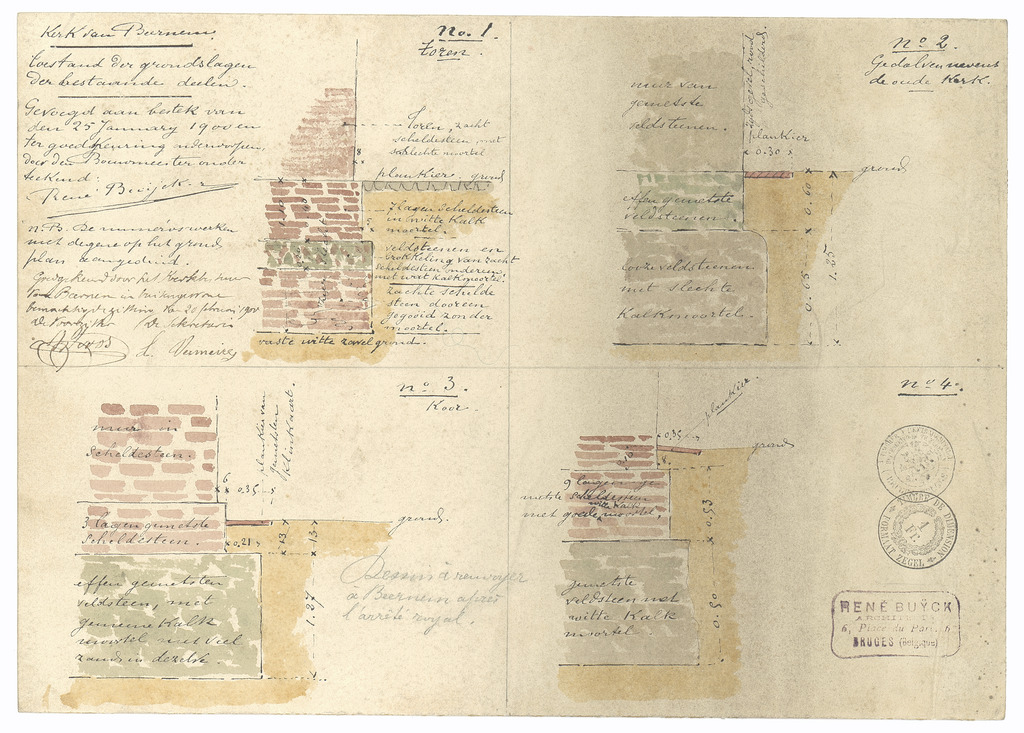 Kerk van Beernem.
Toestand der grondslagen
der bestaande deelen.
Gevoegd aan bestek van
den 25 January 1900 en
ter goedkeuring onderworpen,
door den Bouwmeester onder
teekend:
René Buÿck
N.B. De numéros werken
met degene op het grond
plan aangeduid.
Goedgekeurd door het
Beernem in
20 februari 1900
De Voorzitter De Secretaris
L. Vermeire
No. 1.
Toren.
Toren, zacht
scheldesteen, met
slechte mortel
8
plankier. grond
7 lagen scheldesteen
in witte kalk
moortel.
veldsteenen en
brokkeling van zacht
scheldesteen ondereen
met wat kalkmoortel.
zachte schelde
steen dooreen
gegooid zonder
moortel.
vaste witte zavelgrond.
No 2.
Gedolven nevens
de oude Kerk.
muur van
gemetste
veldsteenen.
plankier
0.30
grond
effen gemetste
veldsteenen.
0.60
1.25
0.65
looze veldsteenen
met slechte
Kalkmoortel.
No 3.
Koor.
muur in
scheldesteen.
plankier van
gemetsten
Klinkaart.
6
0.35
3 lagen gemetste
scheldesteen.
grond.
0.21
13
13
1.27
effen gemetsten
veldsteen, met
gemeene Kalk
moortel, met veel
zand in dezelve.
Dessin à renvoyer
à Beernem après
l'arrêté royal.
No 4.
plankier.
0.35
grond
8
0.10
9 lagen ge
metste scheldesteen
witte Kalk
met goede moortel.
0.53
gemetste
veldsteen met
witte Kalk
moortel.
0.90
1
FR.
FORMAAT ZEGEL
TIMBRE DE DIMENSION
RENÉ BUŸCK
ARCHITECTE
6, Place du Parc, 6
BRUGES (Belgique)